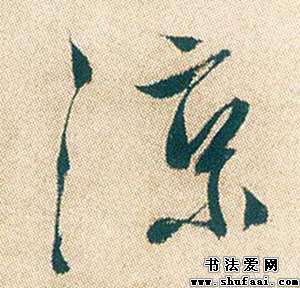 涼
书法爱网
www.shufaai.com